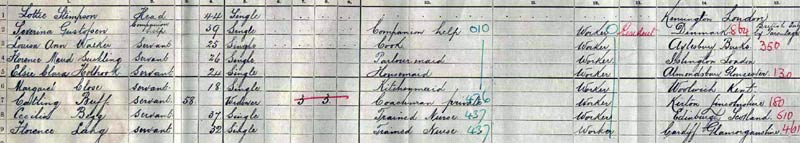 Lottie Stimpson Head 44 Single Kennington London
2 Severina Gustofson Companion Help 39 Single Companion help 010 Worker Resident Denmark 864 British Subject by Parentage
Louisa Ann Walker Servant 25 Single Cook Worker Aylesbury Bucks 350
Florence Maud Suckling Servant 26 Single Parlourmaid Worker Islington London
5 Elsie Clara Holbrook Servant 24 Single Housemaid Worker Almondsbury Gloucester 130
6 Margaret Close Servant 18 Single Kitchenmaid Worker Woolwich Kent
7 Catling Buff Servant 58 Widower 3 3 Coachman private Worker Kerton Lincolnshire 180
8 Cecilia Begg Servant 37 Single Trained Nurse 437 Worker Edinburgh Scotland 510
9 Florence Lang Servant 32 Single Trained Nurse 437 Worker Cardiff Glamorganshire 461